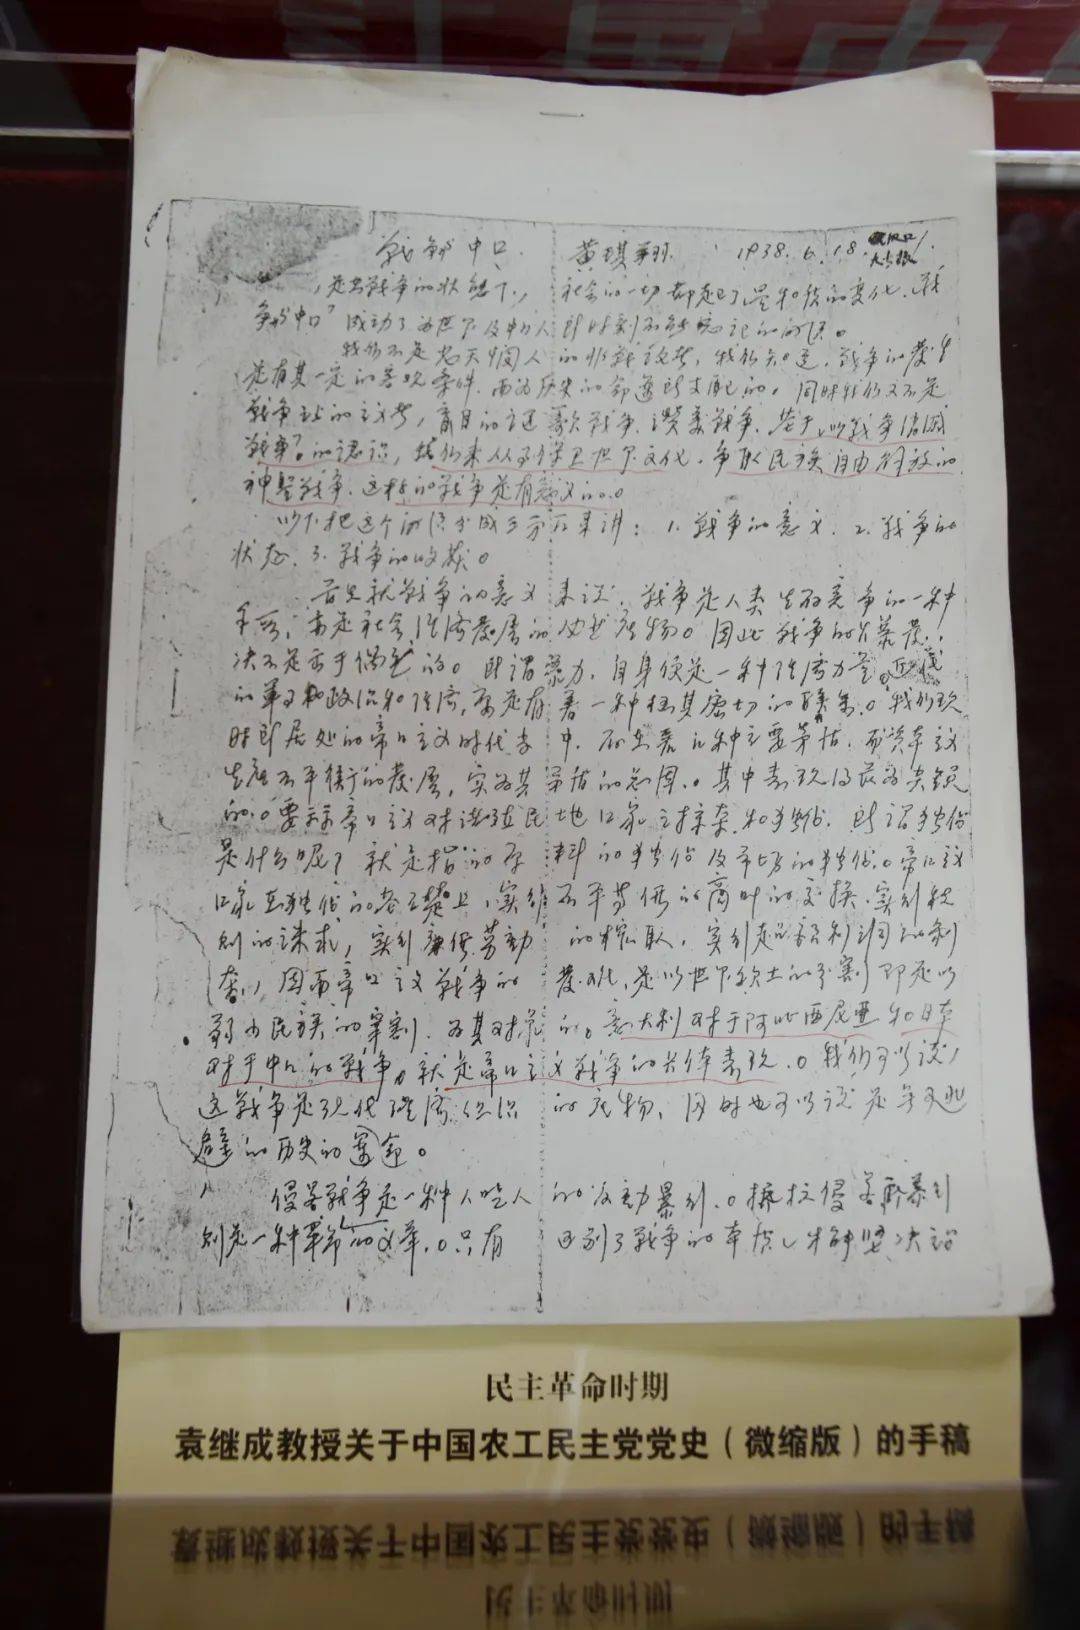 战争与中口 黄琪翔 1938.6.18. 汉口大公报
走出战争的状态下,社会的一切都起了量和质的变化,"战
争与中口"成功了为世界及中口人即时刻不能忘记的问题。
我们不是悲天悯人的非战论者,我们知道,战争的发生
是有其一定的客观条件,而为历史的命运所支配的。同时我们又不是
战争至上的主义者,盲目的讴歌战争、赞美战争,基于"以战争消灭
战争"的认识,我们来从事保卫世界文化、争取民族自由解放的
神圣战争、这样的战争是有意义的。
以下把这个问题分成三方面来讲:1.战争的意义、2.战争的
状态、3.战争的收获。
首先就战争的意义来说,战争是人类生存竞争的一种
手段,亦是社会经济发展的必然产物。因此战争的爆发,
决不是出于偶然的。所谓暴力,自身便是一种经济力量。
的军事和政治和经济,都是有着一种极其密切的联系。我们现
时所居处的帝口主义时代当中,存在着几种主要矛盾,而资本主义
生产不平衡的发展,实为其矛盾的总因。其中表现得最为尖锐
的。要算帝口主义对殖民地口家之掠夺和独占,所谓独占
是什么呢?就是指的原料的独占及市场的独占。帝口主义
口家在独占的基础上,实行不平等价的商业的交换、实行税
则的诛求,实行廉价劳动的榨取,实行超额利润的剥
夺,因而帝口主义战争的发动,是以世界领土的分割即是以
弱小民族的宰割,为其对象的。意大利对于阿比西尼亚和日本
对于中口的战争,就是帝口主义战争的具体表现。我们可以说,
这战争是现代经济组织的产物,同时也可以说是无可逃
避的历史的运命。
侵略战争是一种人吃人的反动暴行。抵抗侵略
则是一种革命的义举。只有区别了战争的本质,才能坚决
民主革命时期
袁继成教授关于中国农工民主党党史(微缩版)的手稿